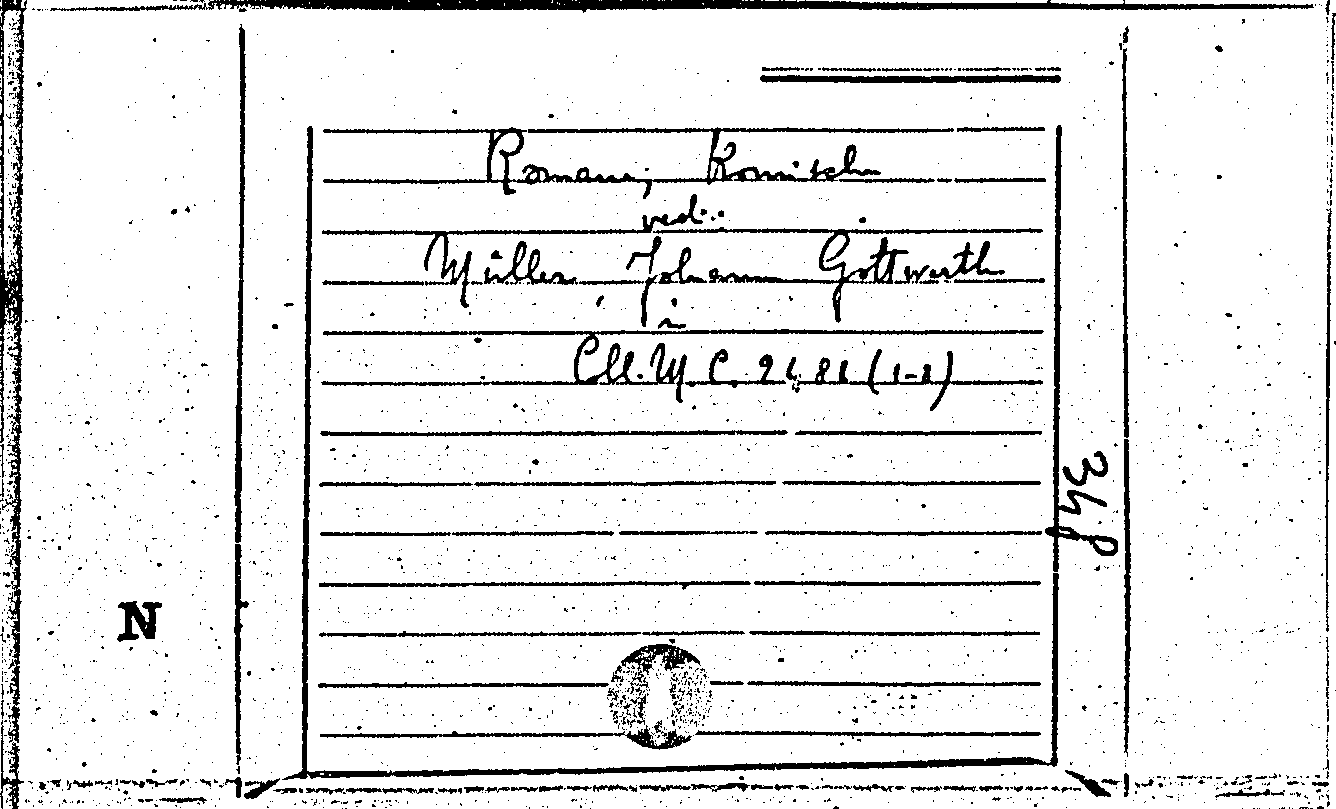 Romane, Komische
vedi:
Müller, Johann Gottwerth
in
Coll. M. C. 2481 (1-8)
348
N